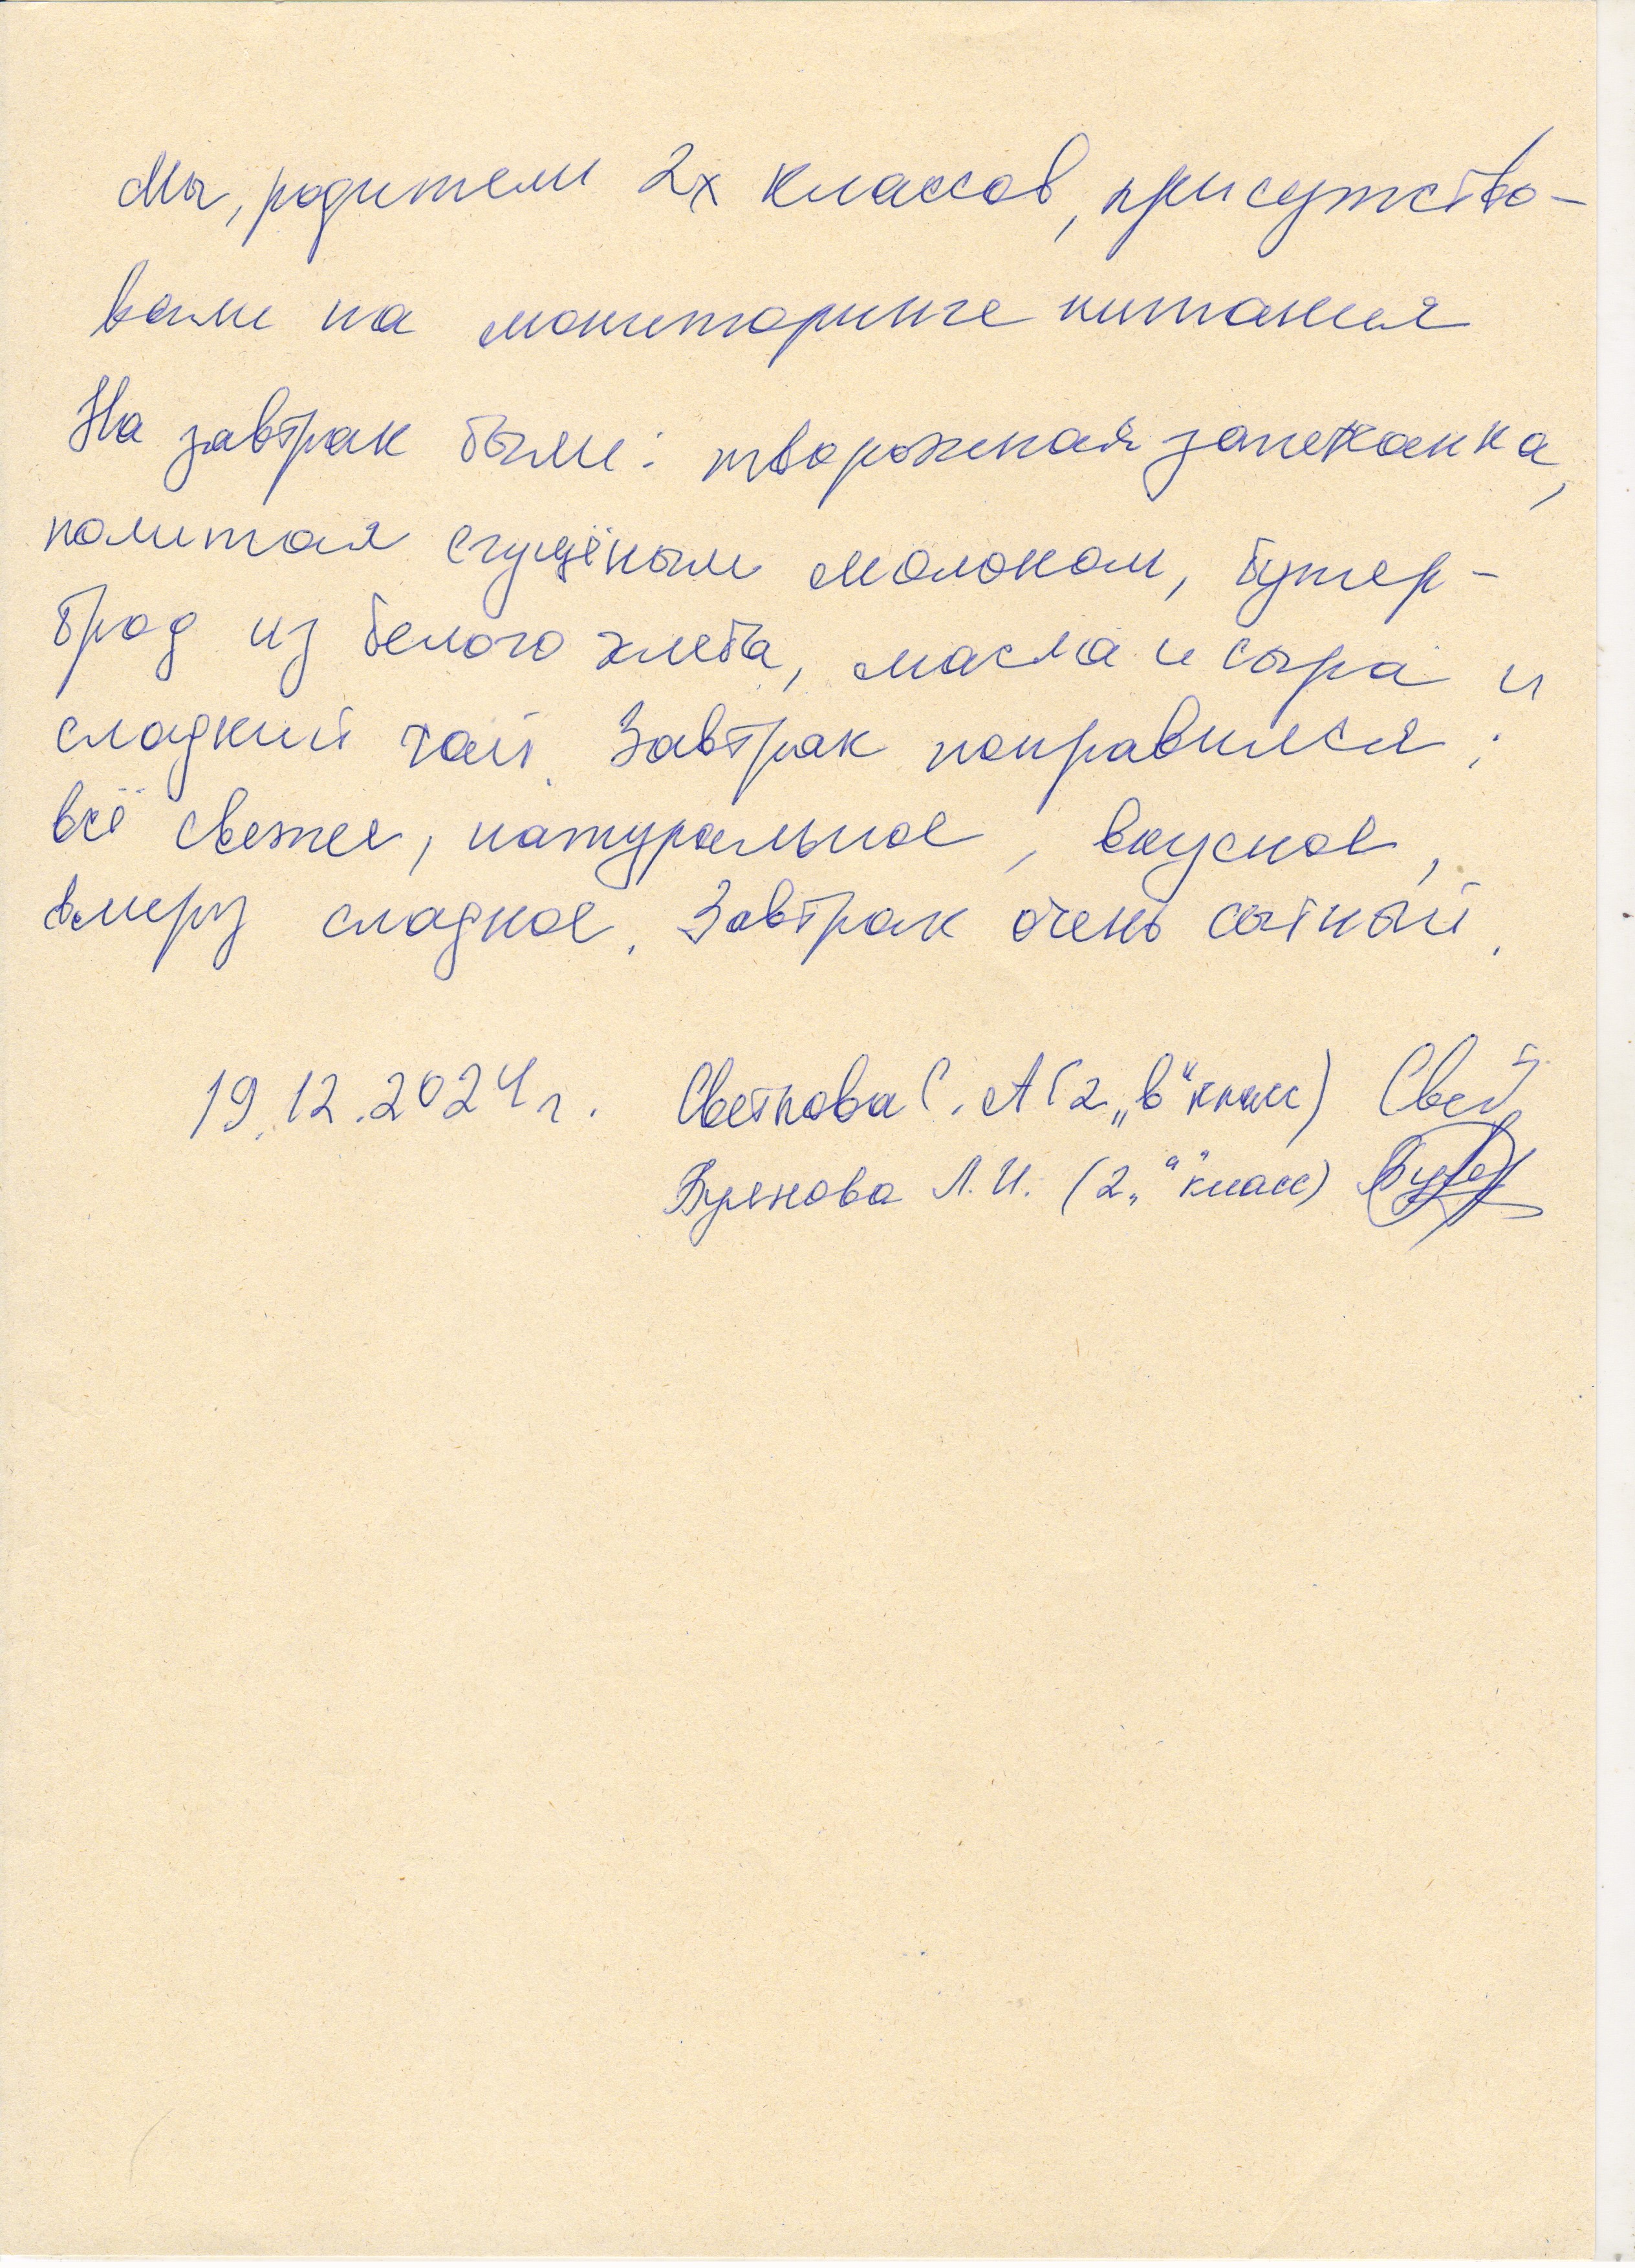 Мы, родители 2х классов, присутство-
вали на мониторинге питания
На завтрак были: творожная запеканка,
политая сгущёным молоком, бутер-
брод из белого хлеба, масла и сыра и
сладкий чай. Завтрак понравился;
всё свежее, натуральное, вкусное,
вмеру сладкое. Завтрак очень сытный.
19.12.2024 г. Светкова С. А (2 „в“ класс)
Л. И. (2 „а“ класс)